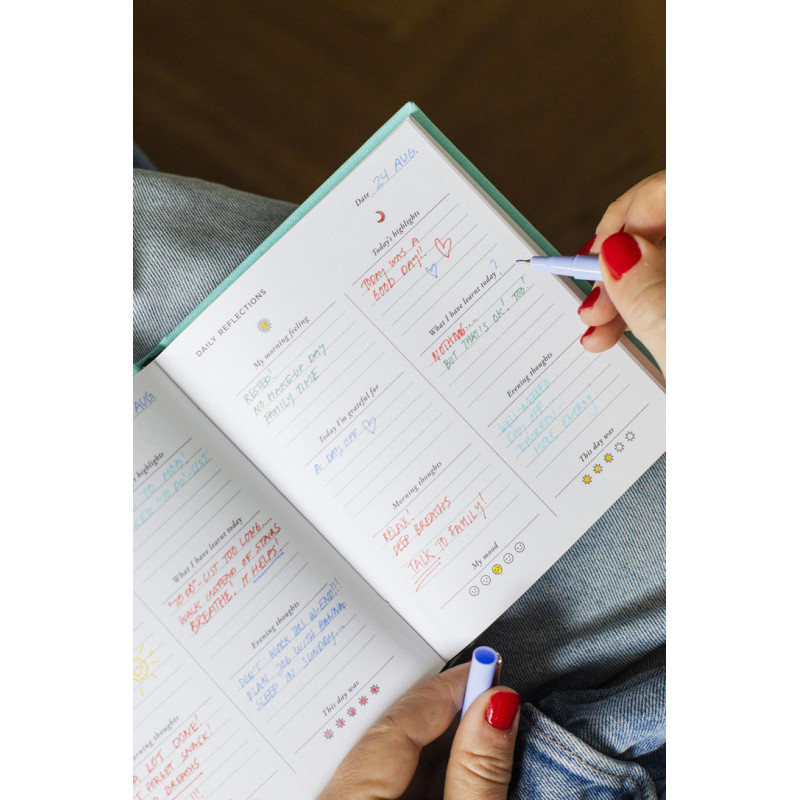 AUG
's highlights
TO MOM!
"TO DO"-LIST
What I have learnt today
"TO DO"-LIST TOO LONG....
WALK INSTEAD OF STAIRS
BREATHE. IT HELPS!
Evening thoughts
DON'T WORK W-END!!!
PLAN WITH
SLEEP IN SUNDAY...
This day was
orning thoughts
A LOT DONE!
T FORGET SNACK!
BREATHS
DAILY REFLECTIONS
Date 24 AUG.
My morning feeling
RESTED!
NO MAKE-UP DAY
FAMILY TIME
Today I'm grateful for
A DAY OFF
Morning thoughts
RELAX!
DEEP BREATHS
TALK TO FAMILY!
My mood
Today's highlights
TODAY WAS A
GOOD DAY!!
What I have learnt today?
NOTHING...
BUT THAT'S OK! TOO!
Evening thoughts
DAY OFF
MORE ENERGY!
This day was